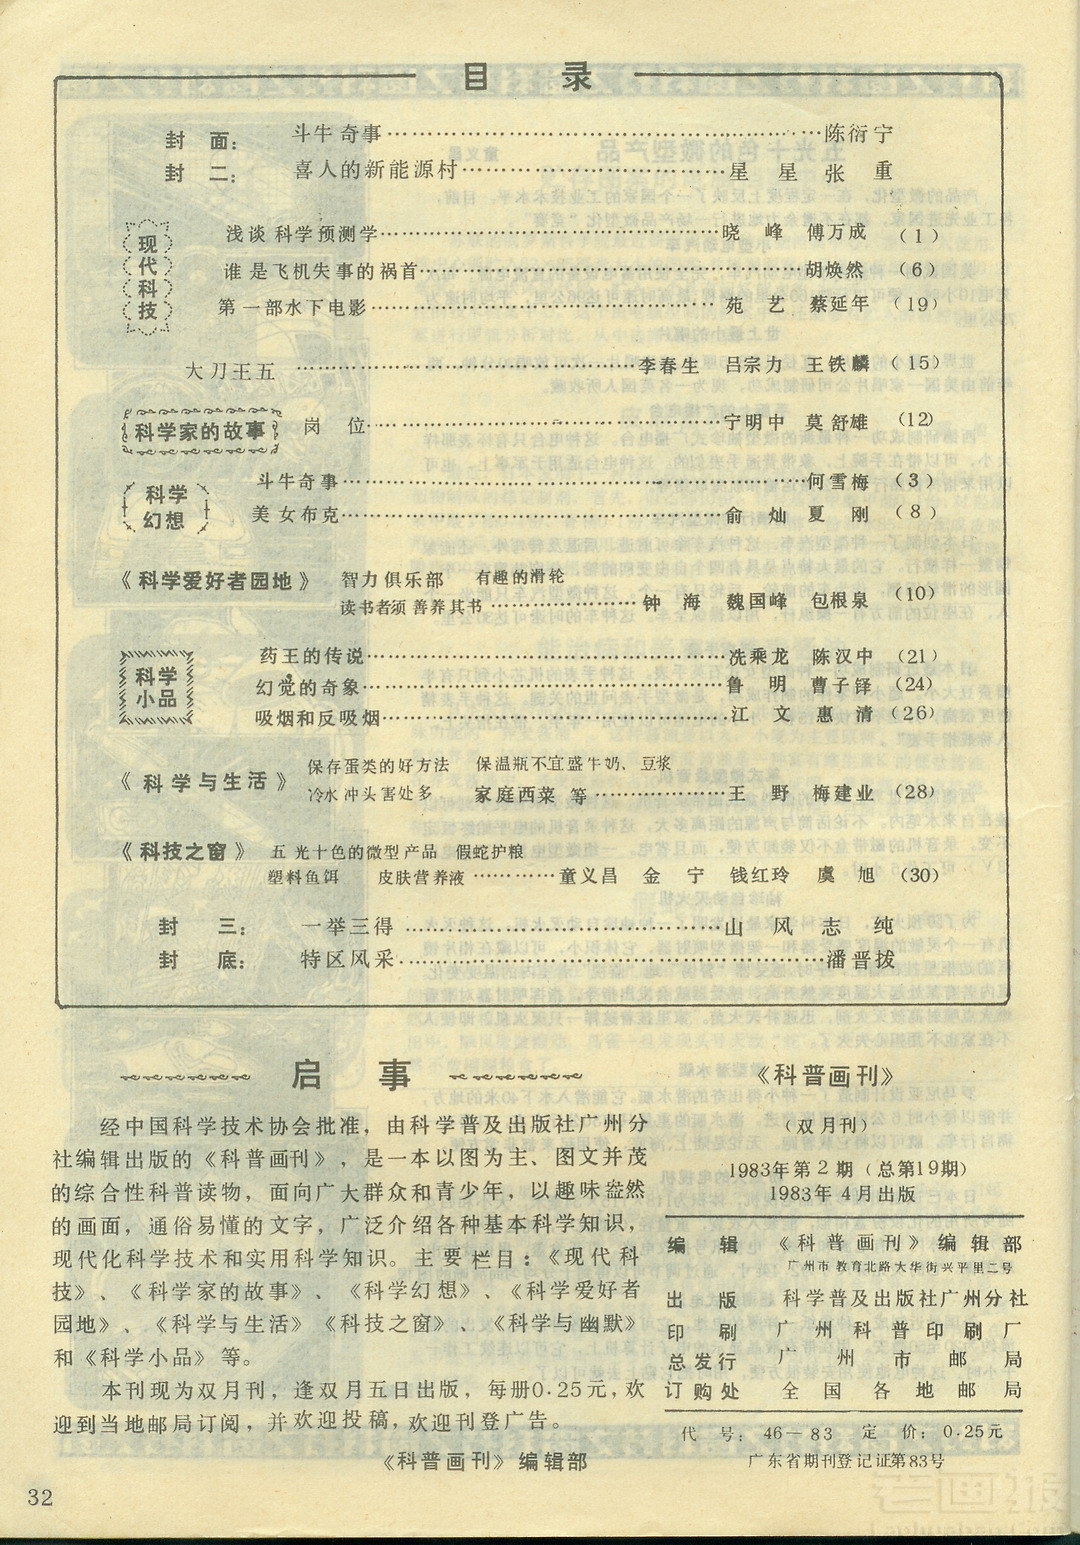 目 录
封 面： 斗牛奇事……………………陈衍宁
封 二： 喜人的新能源村……………………星 星 张 重
现代科技
浅谈科学预测学……………………晓 峰 傅万成 （1）
谁是飞机失事的祸首……………………胡焕然 （6）
第一部水下电影……………………苑 艺 蔡延年 （19）
大刀王五 ……………………李春生 吕宗力 王铁麟 （15）
科学家的故事 岗 位……………………宁明中 莫舒雄 （12）
科学幻想
斗牛奇事……………………何雪梅 （3）
美女布克……………………俞 灿 夏 刚 （8）
《科学爱好者园地》 智力俱乐部 有趣的滑轮
读书者须善养其书……………钟 海 魏国峰 包根泉 （10）
科学小品
药王的传说……………………冼乘龙 陈汉中 （21）
幻觉的奇象……………………鲁 明 曹子铎 （24）
吸烟和反吸烟……………………江 文 惠 清 （26）
《科学与生活》 保存蛋类的好方法 保温瓶不宜盛牛奶、豆浆
冷水冲头害处多 家庭西菜 等………………王 野 梅建业 （28）
《科技之窗》 五光十色的微型产品 假蛇护粮
塑料鱼饵 皮肤营养液…………童义昌 金 宁 钱红玲 虞 旭 （30）
封 三： 一举三得 ……………………山 风 志 纯
封 底： 特区风采……………………潘晋拔
启 事
经中国科学技术协会批准，由科学普及出版社广州分
社编辑出版的《科普画刊》，是一本以图为主、图文并茂
的综合性科普读物，面向广大群众和青少年，以趣味盎然
的画面，通俗易懂的文字，广泛介绍各种基本科学知识，
现代化科学技术和实用科学知识。主要栏目：《现代科
技》、《科学家的故事》、《科学幻想》、《科学爱好者
园地》、《科学与生活》《科技之窗》、《科学与幽默》
和《科学小品》等。
本刊现为双月刊，逢双月五日出版，每册0.25元，欢
迎到当地邮局订阅，并欢迎投稿，欢迎刊登广告。
《科普画刊》编辑部
《科普画刊》
（双月刊）
1983年第2期（总第19期）
1983年4月出版
编 辑 《科普画刊》编辑部
广州市教育北路大华街兴平里二号
出 版 科学普及出版社广州分社
印 刷 广州科普印刷厂
总发行 广州市邮局
订购处 全国各地邮局
代 号：46－83 定 价：0.25元
广东省期刊登记证第83号
32
老画报